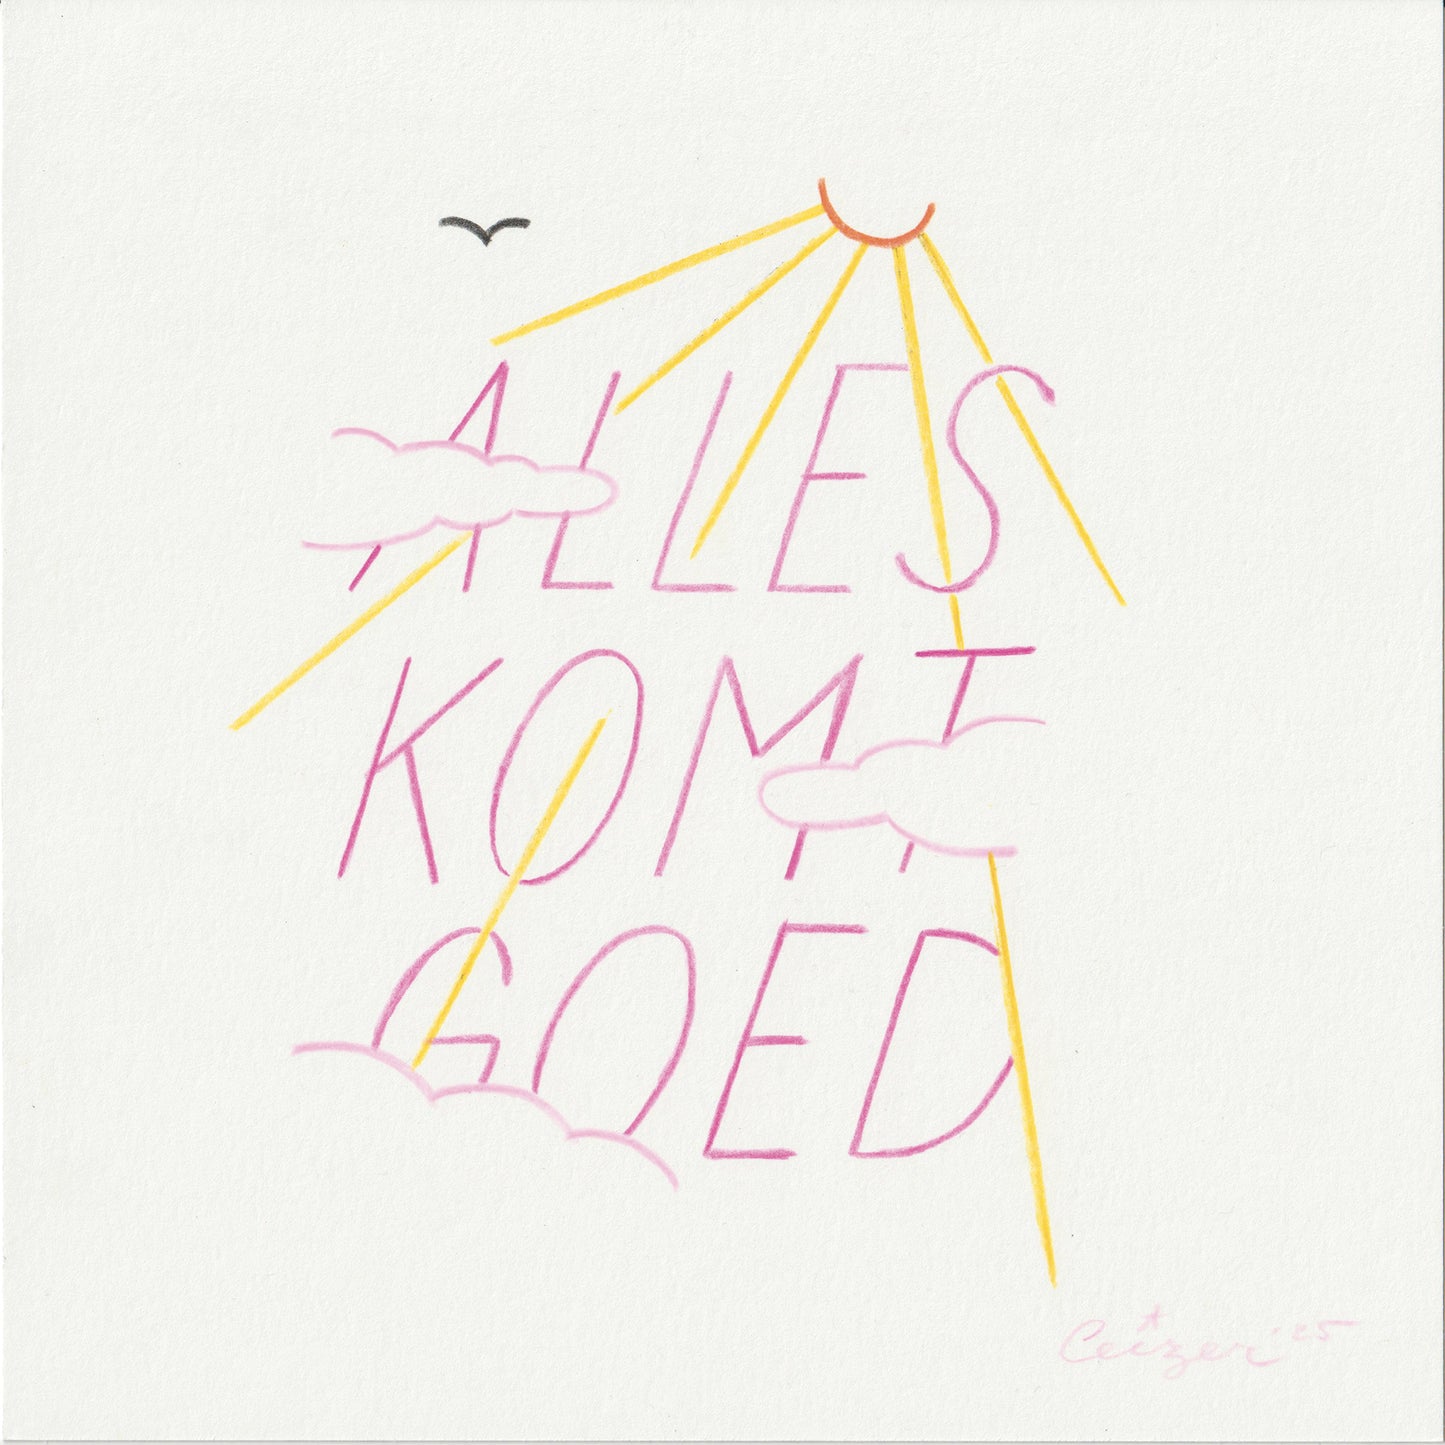 ALLES
KOMT
GOED
Ceizer '25